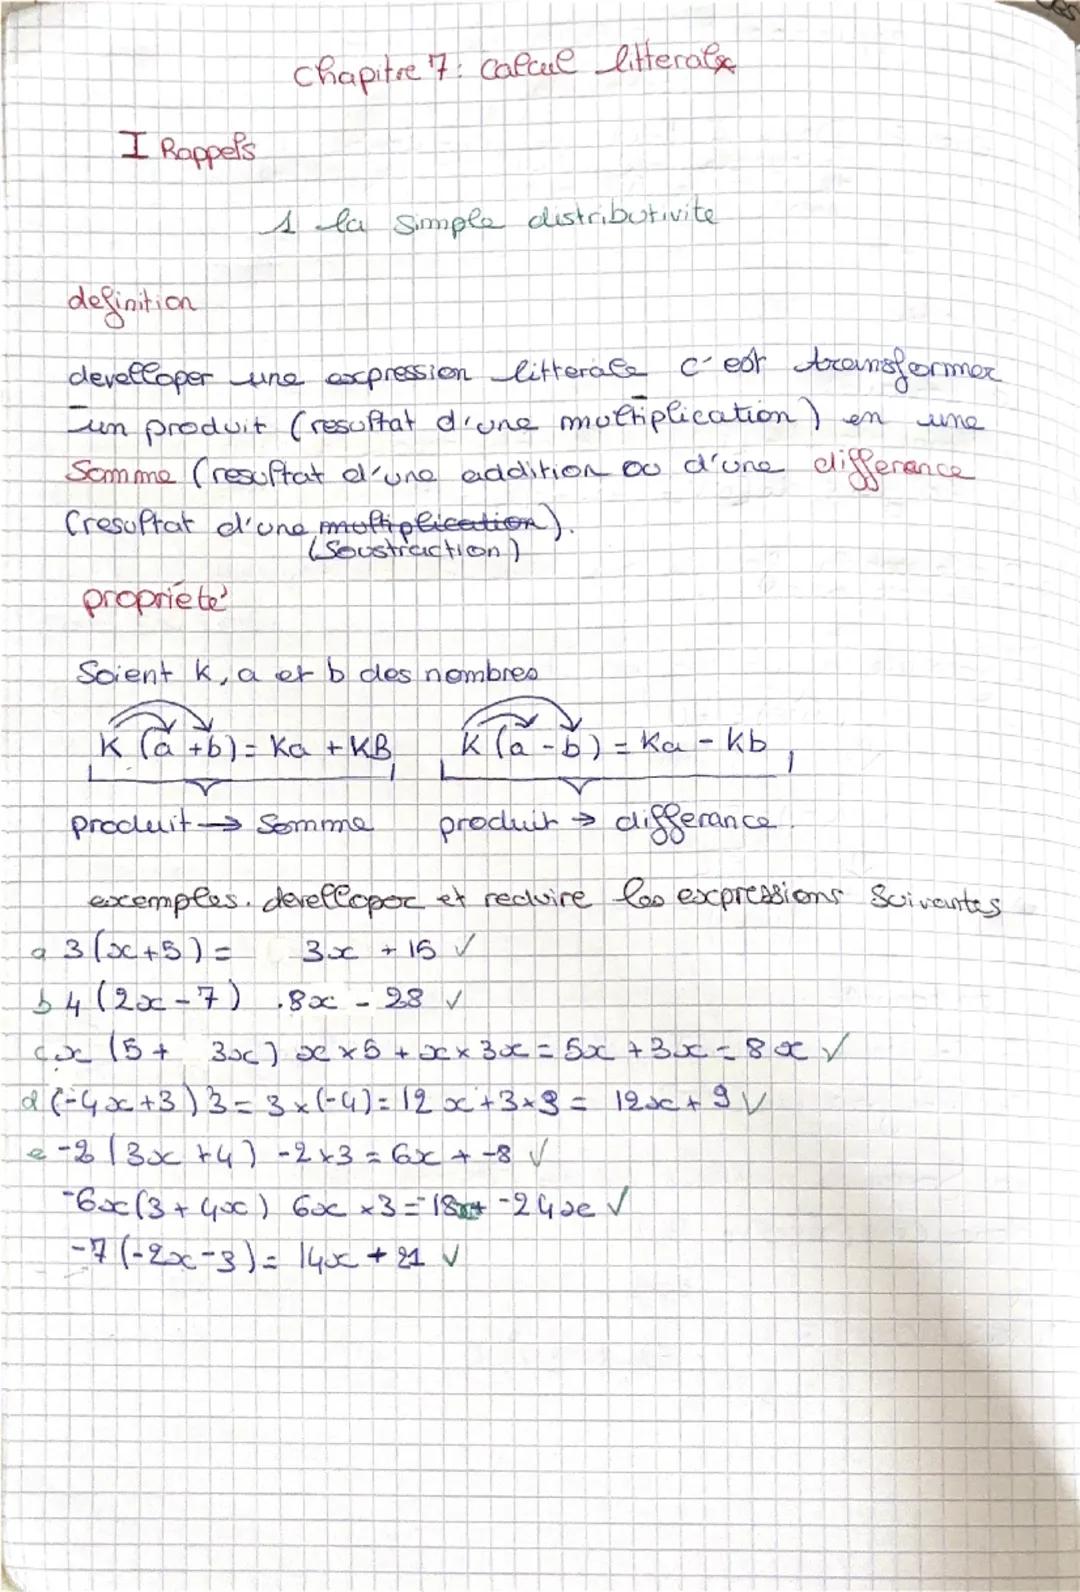 Chapitre 7: Calcul litteralx
I Rappels
1 la simple distributivite
definition
develloper une expression litterale c'est transformer
un produit (resultat d'une multiplication) en une
Somme (resultat d'une addition ou d'une differance
(resultat d'une multiplication).
(Soustraction)
propriété
Soient k, a et b des nombres
K (a+b) = Ka + KB K (a-b) = Ka - Kb
produit → Somme produit → differance.
exemples. develloper et reduire les expressions Suivantes
a 3(x+5) = 3x + 15 ✓
b 4(2x-7) .8x - 28 ✓
c x (5+ 3x) x×5 + x×3x = 5x + 3x = 8x ✓
d (-4x+3)3 = 3×(-4) = 12x + 3×3 = 12x + 9 ✓
e -2(3x+4) -2×3 = 6x + -8 ✓
-6x(3+4x) 6x×3 = -18x+ -24x ✓
-7(-2x-3) = 14x + 21 ✓